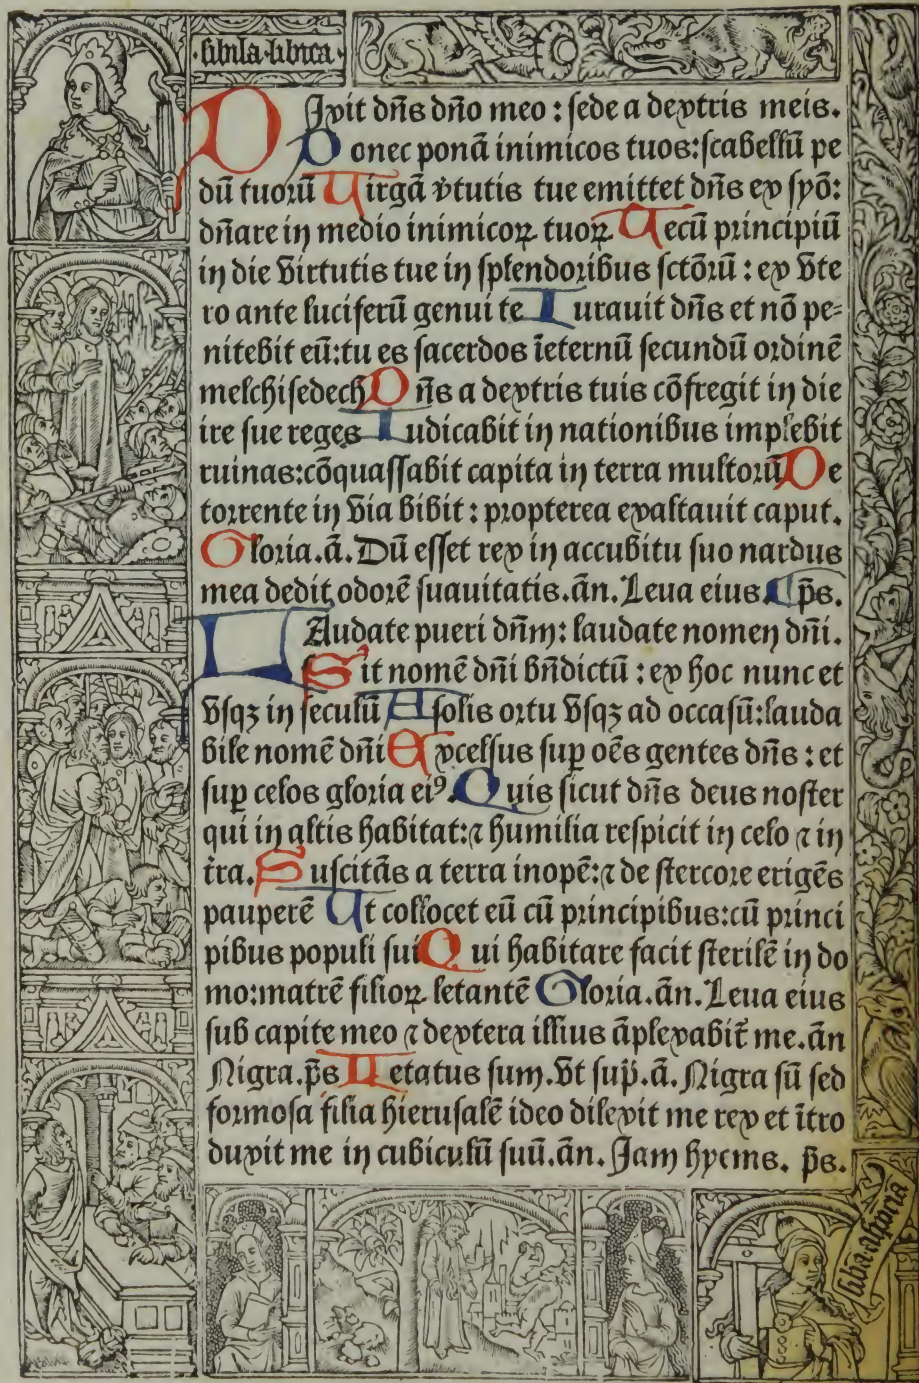 sibila libica
DJxit dñs dño meo : sede a dextris meis.
Donec ponã inimicos tuos:scabellũ pe
dũ tuoꝝ Uirgã v̾tutis tue emittet dñs ex syõ:
dñare in medio inimicoꝝ tuoꝝ Tecũ principiũ
in die virtutis tue in splendoribus sctõꝝ : ex vte
ro ante luciferũ genui te Iurauit dñs et nõ pe⸗
nitebit eũ:tu es sacerdos ĩeternũ secundũ ordinẽ
melchisedech Dñs a dextris tuis cõfregit in die
ire sue reges Iudicabit in nationibus implebit
ruinas:cõquassabit capita in terra multorũ De
torrente in via bibit : propterea exaltauit caput.
Gloria.ã. Dũ esset rex in accubitu suo nardus
mea dedit odorẽ suauitatis.ãn. Leua eius. p̃s.
LAudate pueri dñm: laudate nomen dñi.
Sit nomẽ dñi bñdictũ : ex hoc nunc et
vsqꝫ in seculũ A solis ortu vsqꝫ ad occasũ:lauda
bile nomẽ dñi Excelsus sup oẽs gentes dñs : et
sup celos gloria eiꝰ. Quis sicut dñs deus noster
qui in altis habitat:⁊ humilia respicit in celo ⁊ in
t̾ra. Suscitãs a terra inopẽ:⁊ de stercore erigẽs
pauperẽ Ut collocet eũ cũ principibus:cũ princi
pibus populi sui Qui habitare facit sterilẽ in do
mo:matrẽ filioꝝ letantẽ Gloria.ãn. Leua eius
sub capite meo ⁊ dextera illius ãplexabit̃ me.ãn
Nigra.p̃s Letatus sum. vt sup̃.ã. Nigra sũ sed
formosa filia hierusalẽ ideo dilexit me rex et ĩtro
duxit me in cubiculũ suũ.ãn. Jam hyems. p̃s.